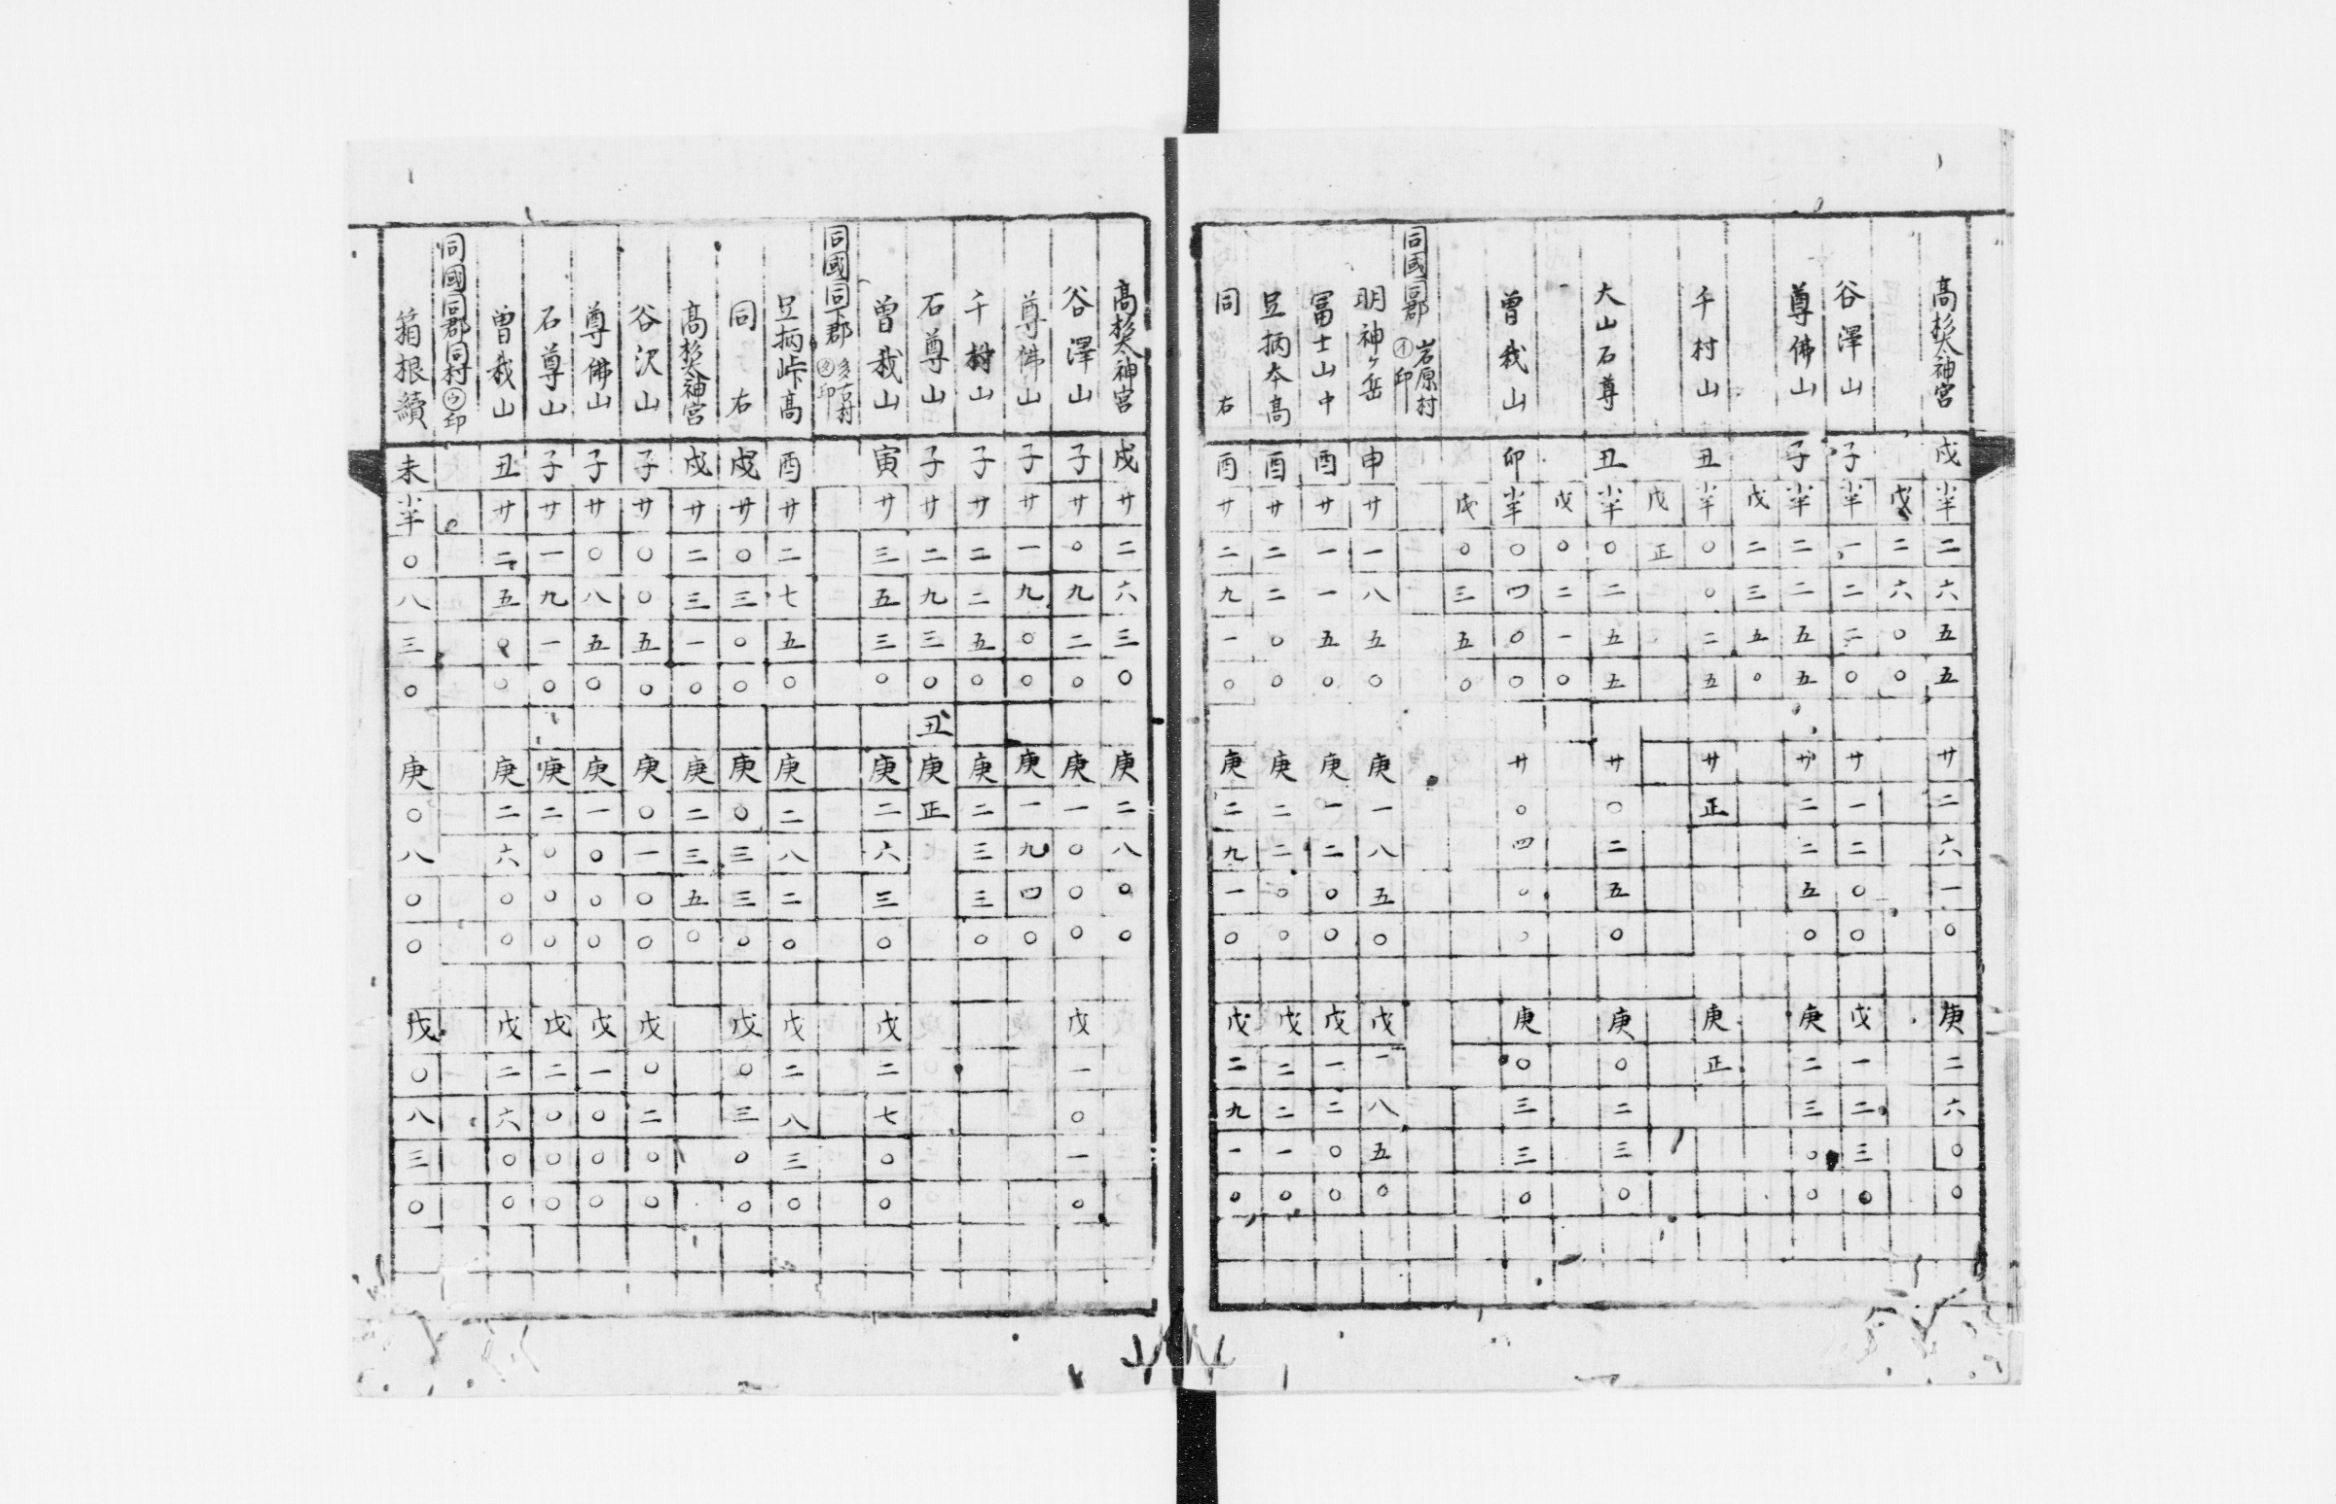 高神宮 戌小半二六五五 廿二六一〇 庚二六〇〇
戊二六〇〇
谷澤山 子小半一二二〇 廿一二〇〇 戊一二三〇
尊佛山 子小半二二五五 廿二二五〇 庚二三〇〇
戊二三五〇
千村山 丑小半〇〇二五 廿正 庚正
戊正
大山石尊 丑小半〇二五五 廿〇二五〇 庚〇二三〇
戊〇二一〇
曽我山 卯小半〇四〇〇 廿〇四〇〇 庚〇三三〇
戊〇三五〇
同國同郡 岩原村 ㋑印
明神ヶ岳 申廿一八五〇 庚一八五〇 戊一八五〇
冨士山中 酉廿一一五〇 庚一二〇〇 戊一二〇〇
足柄夲高 酉廿二二〇〇 庚二二〇〇 戊二二一〇
同右 酉廿二九一〇 庚二九一〇 戊二九一〇
高神宮 戌廿二六三〇 庚二八〇〇
谷澤山 子廿〇九二〇 庚一〇〇〇 戊一〇一〇
尊佛山 子廿一九〇〇 庚一九四〇
千村山 子廿二二五〇 庚二三三〇
石尊山 子廿二九三〇 丑庚正
曽我山 寅廿三五三〇 庚二六三〇 戊二七〇〇
同國同下郡 多古村 印
足柄峠高 酉廿二七五〇 庚二八二〇 戊二八三〇
同右 戌廿〇三〇〇 庚〇三三〇 戊〇三〇〇
高神宮 戌廿二三一〇 庚二三五〇
谷沢山 子廿〇〇五〇 庚〇一〇〇 戊〇二〇〇
尊佛山 子廿〇八五〇 庚一〇〇〇 戊一〇〇〇
石尊山 子廿一九一〇 庚二〇〇〇 戊二〇〇〇
曽我山 丑廿二五〇〇 庚二六〇〇 戊二六〇〇
同國同郡同村 ㋒印
箱根續 未小半〇八三〇 庚〇八〇〇 戊〇八三〇